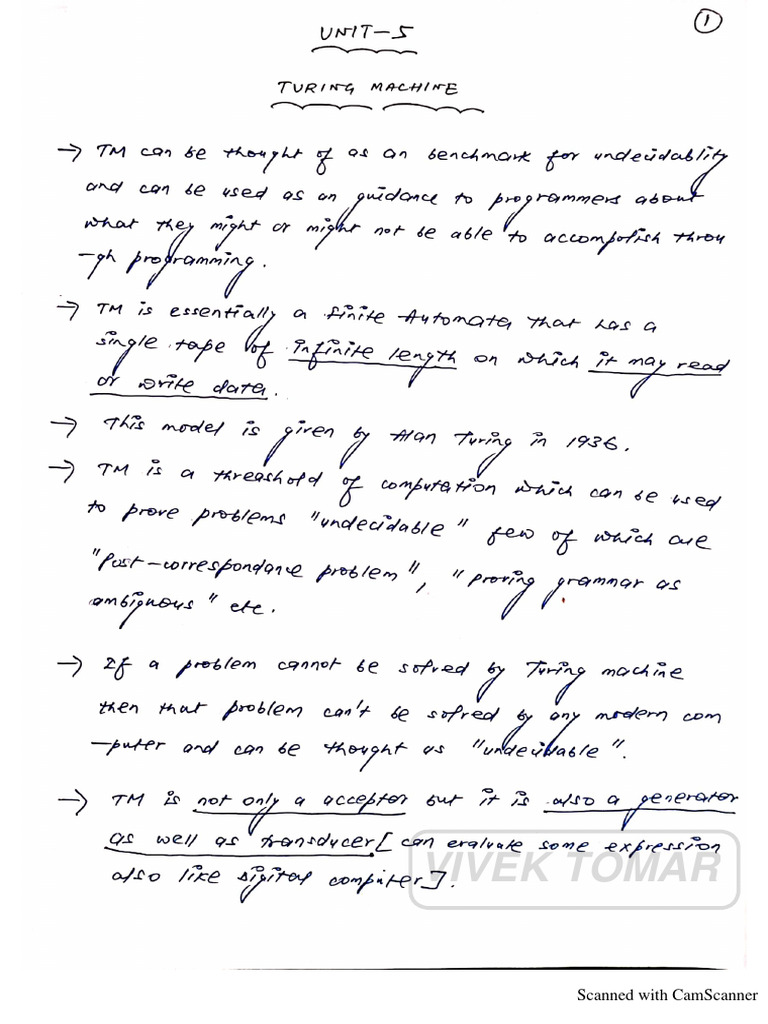 1
UNIT-5
TURING MACHINE
→ TM can be thought of as an benchmark for undecidablity
and can be used as an guidance to programmers about
what they might or might not be able to accompolish throu
-gh programming.
→ TM is essentially a finite Automata that has a
single tape of infinite length on which it may read
or write data.
→ This model is given by Alan Turing in 1936.
→ TM is a threashold of computation which can be used
to prove problems "undecidable" few of which are
"Post-correspondance problem", "proving grammar as
ambiguous" etc.
→ If a problem cannot be solved by Turing machine
then that problem can't be solved by any modern com
-puter and can be thought as "undecidable".
→ TM is not only a acceptor but it is also a generator
as well as transducer [can evaluate some expression
also like digital computer].
VIVEK TOMAR
Scanned with CamScanner